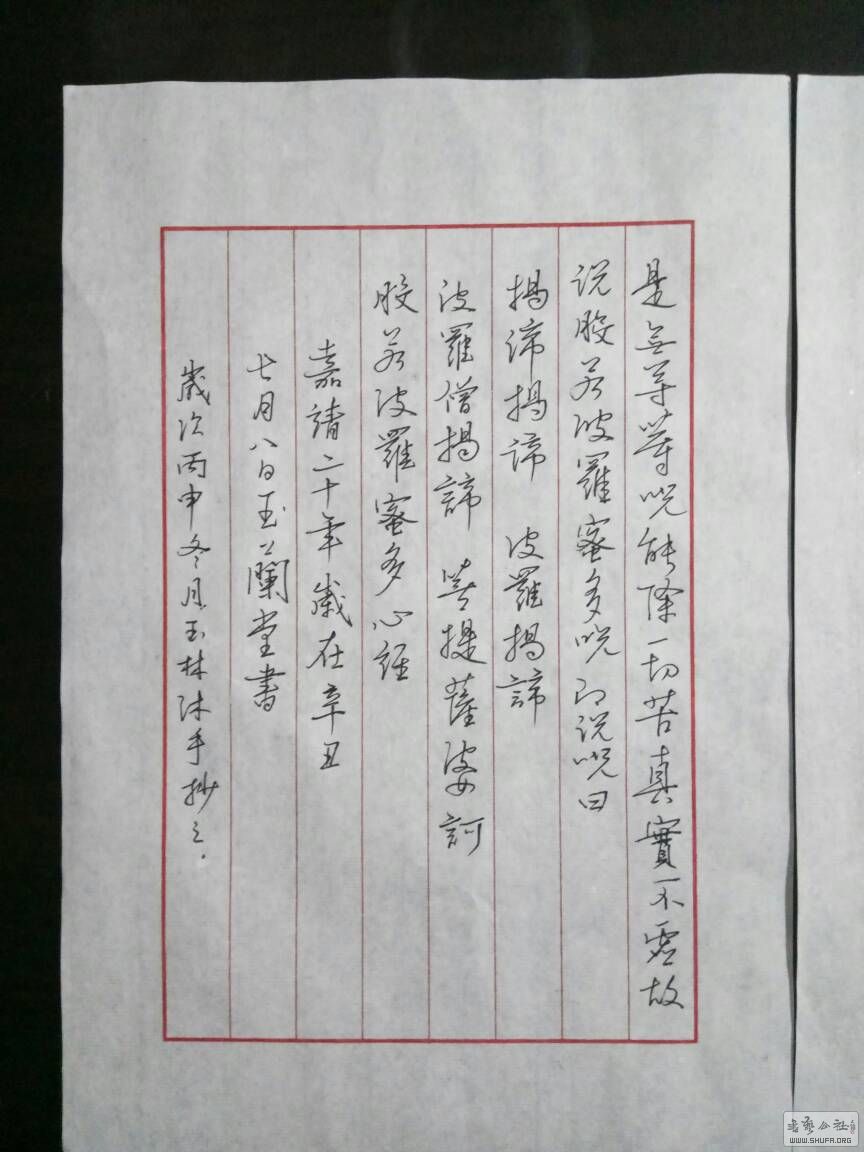 是無等等呪能除一切苦真實不虛故
説般若波羅蜜多呪即説呪曰
揭諦揭諦 波羅揭諦
波羅僧揭諦 菩提薩婆訶
般若波羅蜜多心經
嘉靖二十年歲在辛丑
七月八日玉蘭堂書
歲次丙申冬月玉林沐手抄之.
书艺公社
WWW.SHUFA.ORG